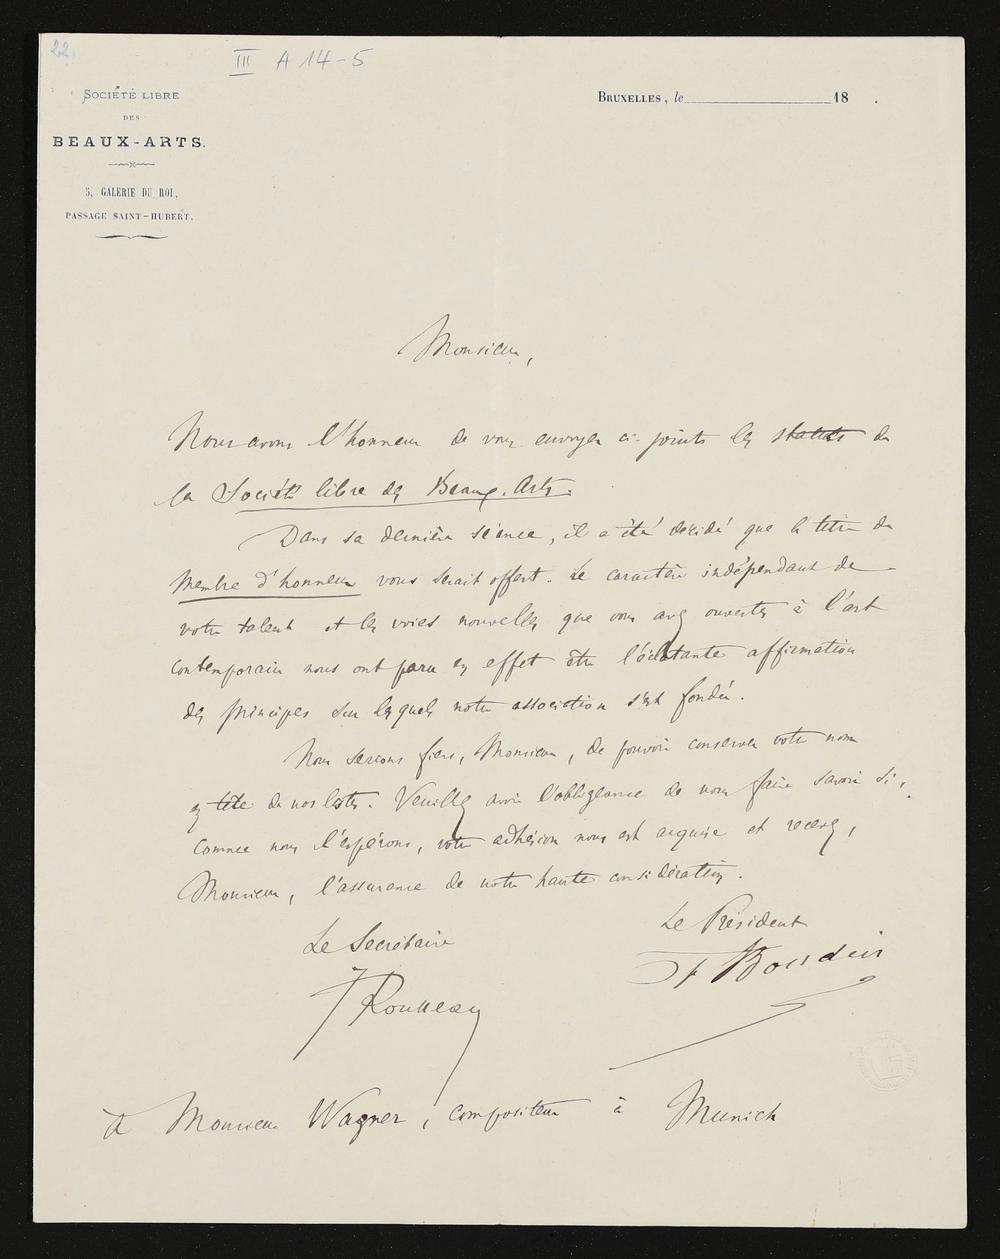 22.
III A 14-5
SOCIÉTÉ LIBRE
DES
BEAUX-ARTS.
5, GALERIE DU ROI,
PASSAGE SAINT-HUBERT.
BRUXELLES, le 18 .
Monsieur,
Nous avons l'honneur de vous envoyer ci-joints les statuts de
la Société libre des Beaux-Arts.
Dans sa dernière séance, il a été décidé que le titre de
Membre d'honneur vous serait offert. Le caractère indépendant de
votre talent et les voies nouvelles que vous avez ouvertes à l'art
contemporain nous ont paru en effet être l'éclatante affirmation
des principes sur lesquels notre association s'est fondée.
Nous serions fiers, Monsieur, de pouvoir conserver votre nom
en tête de nos listes. Veuillez avoir l'obligeance de nous faire savoir si,
comme nous l'espérons, votre adhésion nous est acquise et recevez,
Monsieur, l'assurance de notre haute considération.
Le Secrétaire
J Rousseau
Le Président
Bourdin
à Monsieur Wagner, compositeur à Munich